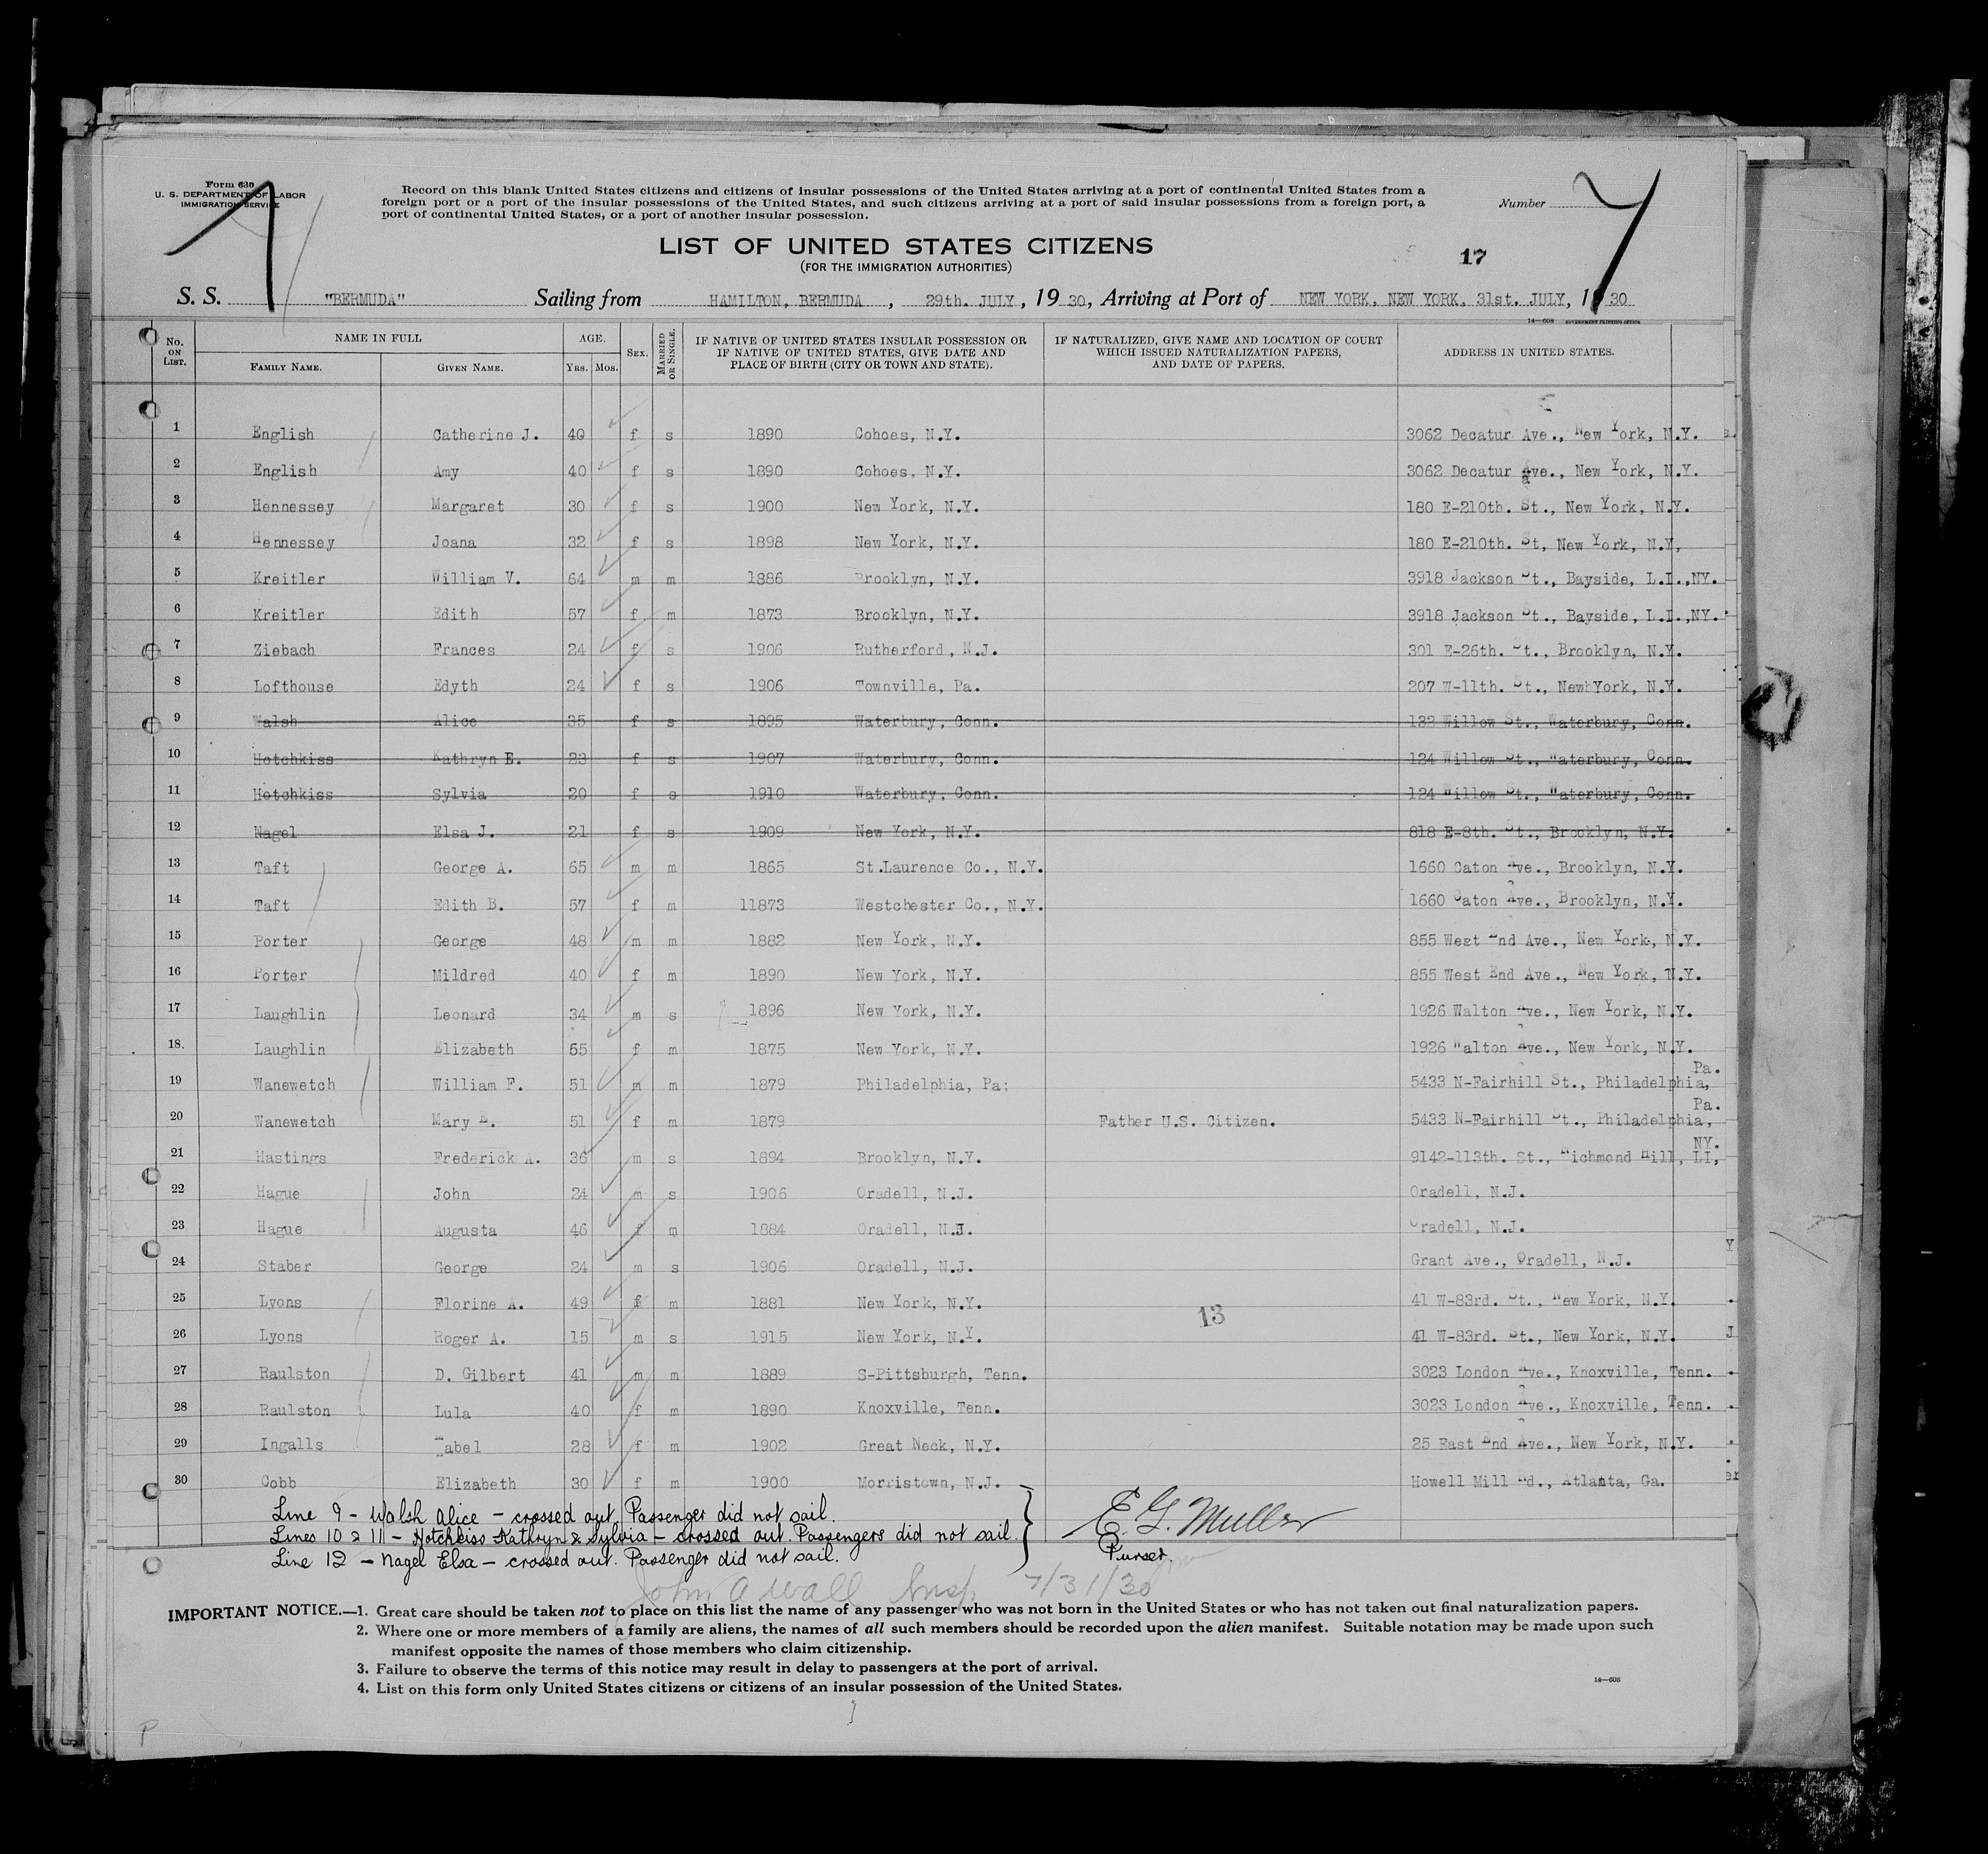 Form 630
U. S. DEPARTMENT OF LABOR
IMMIGRATION SERVICE
Record on this blank United States citizens and citizens of insular possessions of the United States arriving at a port of continental United States from a
foreign port or a port of the insular possessions of the United States, and such citizens arriving at a port of said insular possessions from a foreign port, a
port of continental United States, or a port of another insular possession.
Number
LIST OF UNITED STATES CITIZENS
(FOR THE IMMIGRATION AUTHORITIES)
17
S. S. "BERMUDA" Sailing from HAMILTON, BERMUDA , 29th. JULY , 19 30, Arriving at Port of NEW YORK, NEW YORK, 31st. JULY, 19 30
14—608 GOVERNMENT PRINTING OFFICE
No. ON LIST. NAME IN FULL FAMILY NAME. GIVEN NAME. AGE. YRS. MOS. SEX. MARRIED OR SINGLE. IF NATIVE OF UNITED STATES INSULAR POSSESSION OR IF NATIVE OF UNITED STATES, GIVE DATE AND PLACE OF BIRTH (CITY OR TOWN AND STATE). IF NATURALIZED, GIVE NAME AND LOCATION OF COURT WHICH ISSUED NATURALIZATION PAPERS, AND DATE OF PAPERS. ADDRESS IN UNITED STATES.
1 English Catherine J. 40 f s 1890 Cohoes, N.Y. 3062 Decatur Ave., New York, N.Y.
2 English Amy 40 f s 1890 Cohoes, N.Y. 3062 Decatur Ave., New York, N.Y.
3 Hennessey Margaret 30 f s 1900 New York, N.Y. 180 E-210th. St., New York, N.Y.
4 Hennessey Joana 32 f s 1898 New York, N.Y. 180 E-210th. St, New York, N.Y,
5 Kreitler William V. 64 m m 1886 Brooklyn, N.Y. 3918 Jackson St., Bayside, L.I.,NY.
6 Kreitler Edith 57 f m 1873 Brooklyn, N.Y. 3918 Jackson St., Bayside, L.I.,NY.
7 Ziebach Frances 24 f s 1906 Rutherford, N.J. 301 E-26th. St., Brooklyn, N.Y.
8 Lofthouse Edyth 24 f s 1906 Townville, Pa. 207 W-11th. St., NewbYork, N.Y.
9 Walsh Alice 35 f s 1895 Waterbury, Conn. 132 Willow St., Waterbury, Conn.
10 Hotchkiss Kathryn E. 23 f s 1907 Waterbury, Conn. 124 Willow St., Waterbury, Conn.
11 Hotchkiss Sylvia 20 f s 1910 Waterbury, Conn. 124 Willow St., Waterbury, Conn.
12 Nagel Elsa J. 21 f s 1909 New York, N.Y. 818 E-8th. St., Brooklyn, N.Y.
13 Taft George A. 65 m m 1865 St.Laurence Co., N.Y. 1660 Caton Ave., Brooklyn, N.Y.
14 Taft Edith B. 57 f m 11873 Westchester Co., N.Y. 1660 Caton Ave., Brooklyn, N.Y.
15 Porter George 48 m m 1882 New York, N.Y. 855 West End Ave., New York, N.Y.
16 Porter Mildred 40 f m 1890 New York, N.Y. 855 West End Ave., New York, N.Y.
17 Laughlin Leonard 34 m s 1896 New York, N.Y. 1926 Walton Ave., New York, N.Y.
18. Laughlin Elizabeth 55 f m 1875 New York, N.Y. 1926 Walton Ave., New York, N.Y.
19 Wanewetch William F. 51 m m 1879 Philadelphia, Pa; 5433 N-Fairhill St., Philadelphia, Pa.
20 Wanewetch Mary E. 51 f m 1879 Father U.S. Citizen. 5433 N-Fairhill St., Philadelphia, Pa.
21 Hastings Frederick A. 36 m s 1894 Brooklyn, N.Y. 9142-113th. St., Richmond Hill, LI, NY.
22 Hague John 24 m s 1906 Oradell, N.J. Oradell, N.J.
23 Hague Augusta 46 f m 1884 Oradell, N.J. Oradell, N.J.
24 Staber George 24 m s 1906 Oradell, N.J. Grant Ave., Oradell, N.J.
25 Lyons Florine A. 49 f m 1881 New York, N.Y. 41 W-83rd. St., New York, N.Y.
13
26 Lyons Roger A. 15 m s 1915 New York, N.Y. 41 W-83rd. St., New York, N.Y.
27 Raulston D. Gilbert 41 m m 1889 S-Pittsburgh, Tenn. 3023 London Ave., Knoxville, Tenn.
28 Raulston Lula 40 f m 1890 Knoxville, Tenn. 3023 London Ave., Knoxville, Tenn.
29 Ingalls Mabel 28 f m 1902 Great Neck, N.Y. 25 East End Ave., New York, N.Y.
30 Cobb Elizabeth 30 f m 1900 Morristown, N.J. Howell Mill Rd., Atlanta, Ga.
Line 9 – Walsh Alice – crossed out. Passenger did not sail.
Lines 10 & 11 – Hotchkiss Kathryn & Sylvia – crossed out. Passengers did not sail.
Line 12 – Nagel Elsa – crossed out. Passenger did not sail.
E. G. Muller
Purser.
John A Wall Insp 7/31/30
IMPORTANT NOTICE.—1. Great care should be taken not to place on this list the name of any passenger who was not born in the United States or who has not taken out final naturalization papers.
2. Where one or more members of a family are aliens, the names of all such members should be recorded upon the alien manifest. Suitable notation may be made upon such
manifest opposite the names of those members who claim citizenship.
3. Failure to observe the terms of this notice may result in delay to passengers at the port of arrival.
4. List on this form only United States citizens or citizens of an insular possession of the United States.
14—608
P